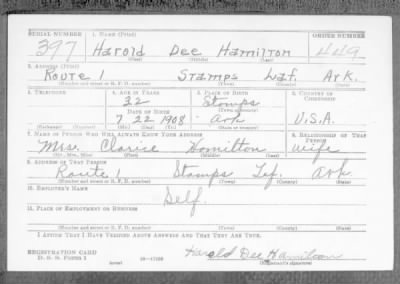 SERIAL NUMBER 1. NAME (Print) ORDER NUMBER
397 Harold Dee Hamilton 449
(First) (Middle) (Last)
2. ADDRESS (Print)
Route 1 Stamps Laf. Ark.
(Number and street or R. F. D. number) (Town) (County) (State)
3. TELEPHONE 4. AGE IN YEARS 5. PLACE OF BIRTH 6. COUNTRY OF CITIZENSHIP
32 Stamps
DATE OF BIRTH (Town or county)
7 22 1908 Ark U.S.A.
(Exchange) (Number) (Mo.) (Day) (Yr.) (State or country)
7. NAME OF PERSON WHO WILL ALWAYS KNOW YOUR ADDRESS 8. RELATIONSHIP OF THAT PERSON
Mrs. Clarice Hamilton Wife
(Mr., Mrs., Miss) (First) (Middle) (Last)
9. ADDRESS OF THAT PERSON
Route 1 Stamps Laf. Ark
(Number and street or R. F. D. number) (Town) (County) (State)
10. EMPLOYER'S NAME
Self.
11. PLACE OF EMPLOYMENT OR BUSINESS
(Number and street or R. F. D. number) (Town) (County) (State)
I AFFIRM THAT I HAVE VERIFIED ABOVE ANSWERS AND THAT THEY ARE TRUE.
REGISTRATION CARD Harold Dee Hamilton
D. S. S. FORM 1 (over) (Registrant's signature)